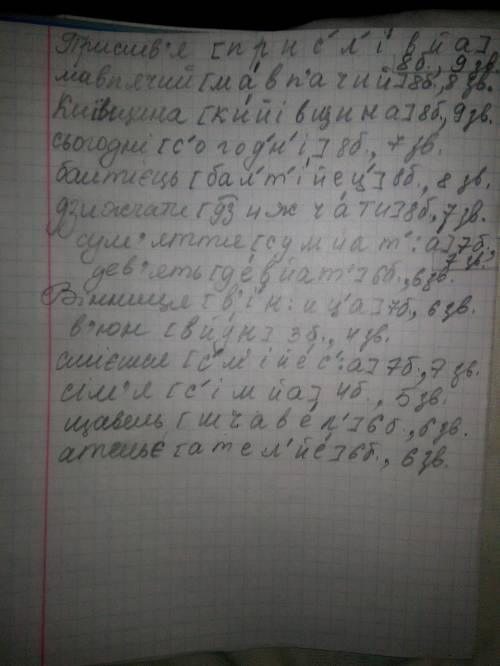 Прислів'я [прис'л'івйа]
8б., 9зв.
мавпячий [мавпачий] 8б., 8 зв.
Київщина [кийівщина] 8б, 9зв.
сьогодні [с'огод'н'і] 8б., 7 зв.
балтієць [бал'т'ійец'] 8б., 8 зв.
дзижчати [дзижчати] 8б, 7зв.
сум'яття [сумйат':а] 7б.
7 зв.
дев'ять [девйат'] 6б., 6зв.
Вінниця [в'ін:иц'а] 7б., 6 зв.
в'юн [вйун] 3б., 4зв.
смієшся [с'м'ійес':а] 7б., 7 зв.
сім'я [с'імйа] 4б., 5зв.
щавель [шчавел'] 6б., 6зв.
ательє [ател'йе] 6б., 6зв.